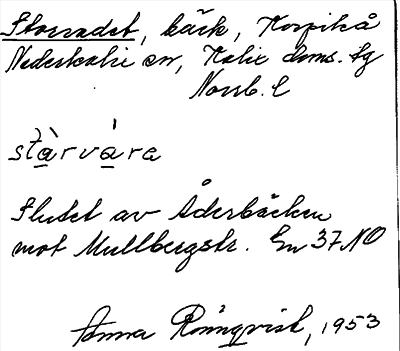 Storvadet, bäck, Korpikå
Nederkalix sn, Kalix doms. lg
Norrb. l
stàrvára
Slutet av Åderbäcken
mot Mullbergstr. En 37 NO
Anna Rönnqvist, 1953